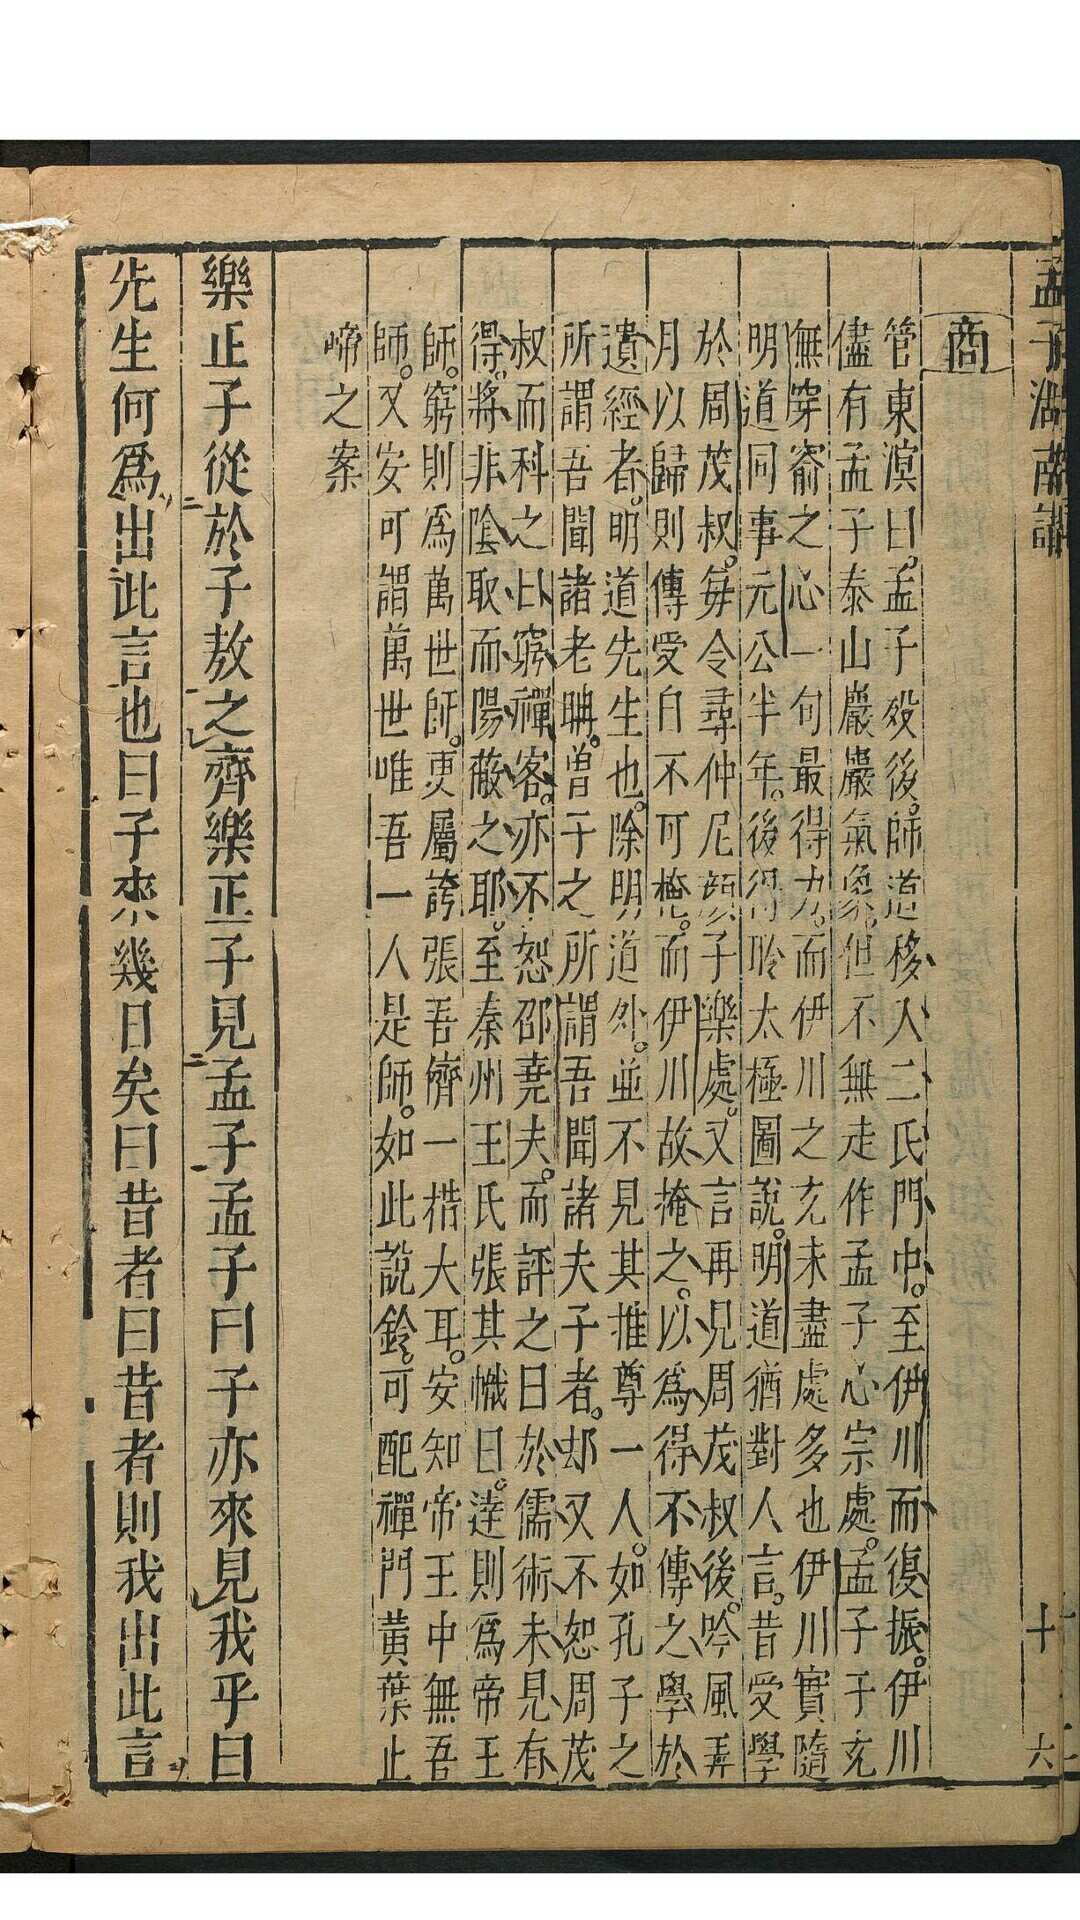 孟子湖南講
十六
商
管東溟曰孟子歿後師道移入二氏門中至伊川而復振伊川
儘有孟子泰山巖巖氣象但不無走作孟子心宗處孟子于充
無穿窬之心一句最得力而伊川之充未盡處多也伊川實隨
明道同事元公半年後得聆太極圖說明道猶對人言昔受學
於周茂叔每令尋仲尼顏子樂處又言再見周茂叔後吟風弄
月以歸則傳受自不可掩而伊川故掩之以為得不傳之學於
遺經者明道先生也除明道外並不見其推尊一人如孔子之
所謂吾聞諸老聃曾子之所謂吾聞諸夫子者却又不恕周茂
叔而科之曰窮禪客亦不恕邵堯夫而評之曰於儒術未見有
得將非陰取而陽蔽之耶至秦州王氏張其幟曰達則為帝王
師窮則為萬世師更屬誇張吾儕一措大耳安知帝王中無吾
師又安可謂萬世唯吾一人是師如此說鈴可配禪門黃葉止
啼之案
樂正子從於子敖之齊樂正子見孟子孟子曰子亦來見我乎曰
先生何為出此言也曰子來幾日矣曰昔者曰昔者則我出此言